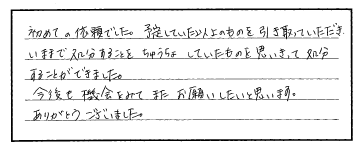 初めての依頼でした。予定していた以上のものを引き取っていただき
いままで処分することをちゅうちょしていたものを思いきって処分
することができました。
今後も機会をみてまたお願いしたいと思います。
ありがとうございました。